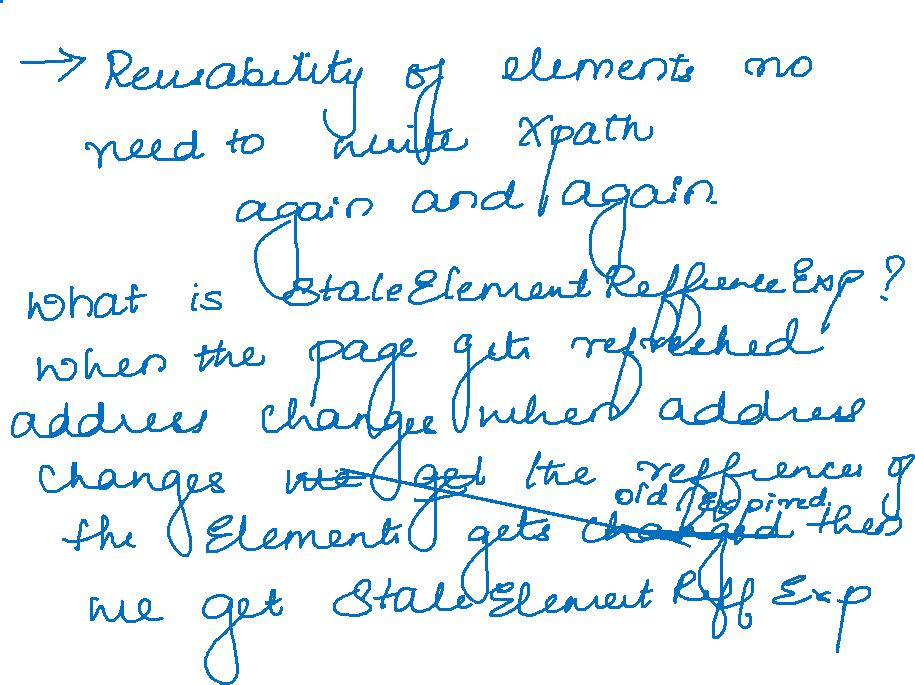 → Reusability of elements no
need to write Xpath
again and again
What is StaleElementReffrenceExp?
When the page gets refreshed
address changes when address
changes we get the reffrences of
old/expired
the Elements gets changed then
we get StaleElement Reff Exp